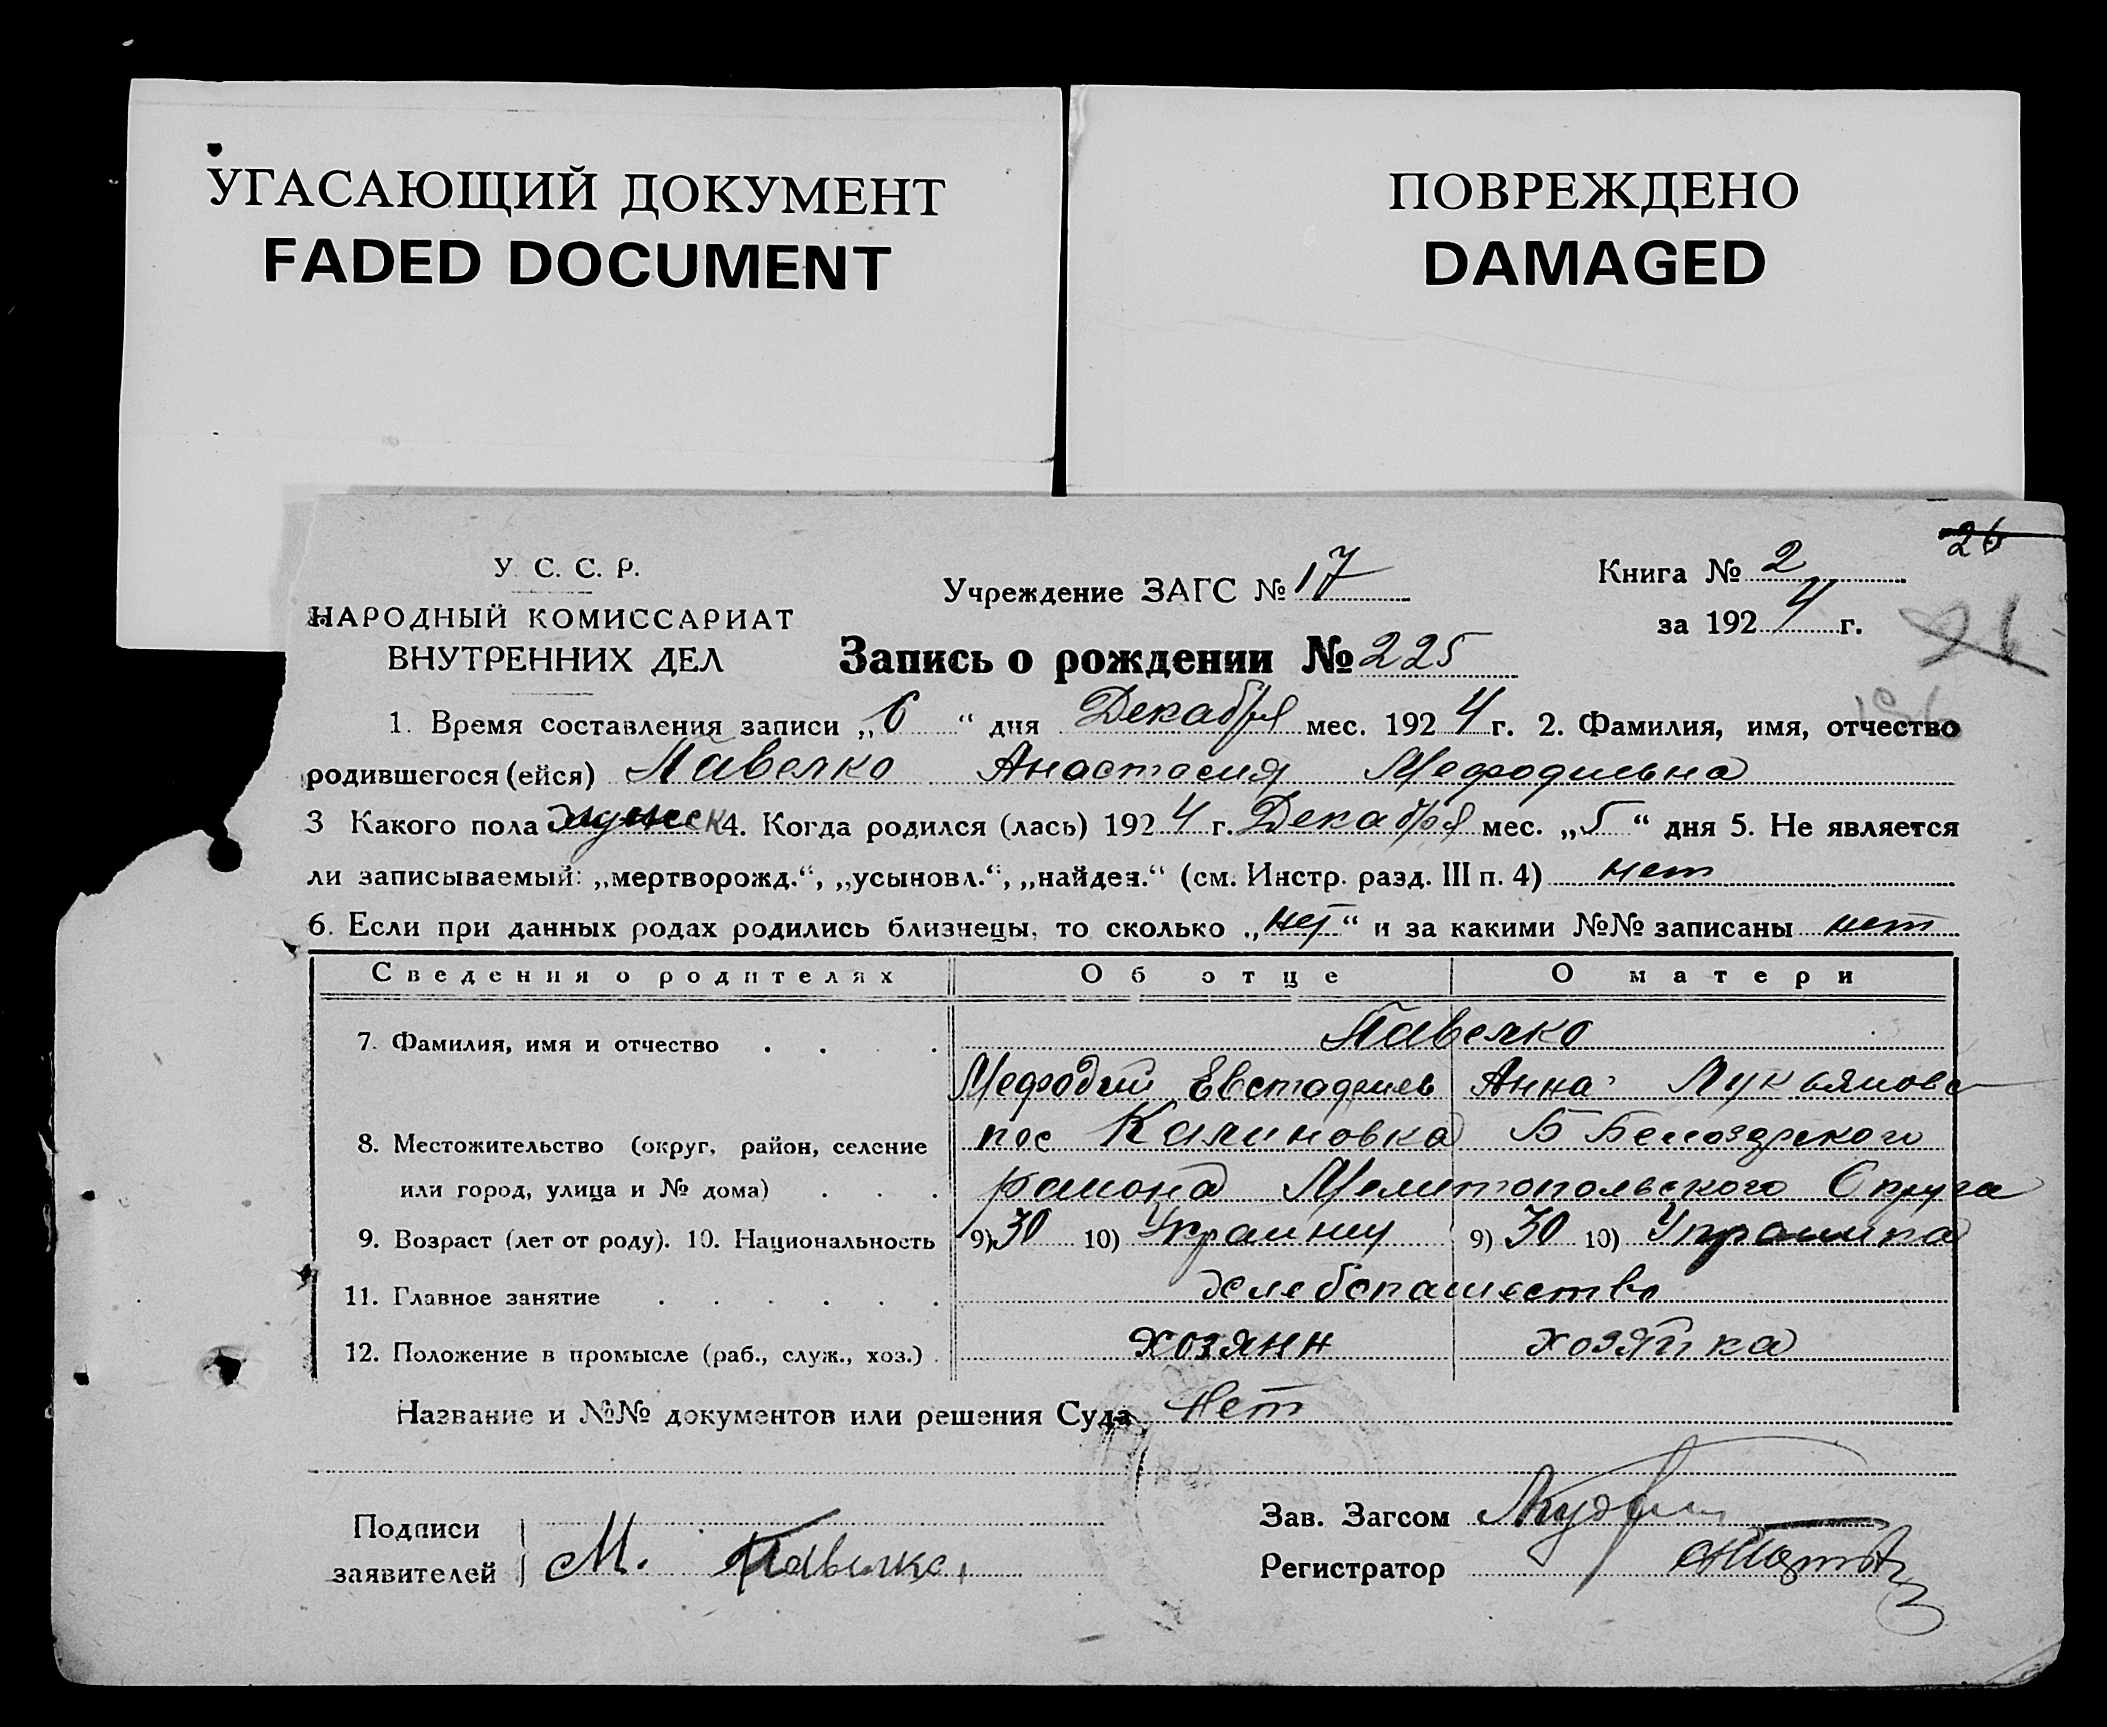 УГАСАЮЩИЙ ДОКУМЕНТ
FADED DOCUMENT
ПОВРЕЖДЕНО
DAMAGED
26
У. С. С. Р.
НАРОДНЫЙ КОМИССАРИАТ
ВНУТРЕННИХ ДЕЛ
Учреждение ЗАГС № 17
Книга № 2
за 1924 г.
Запись о рождении № 225
1. Время составления записи „6“ дня Декабря мес. 1924 г. 2. Фамилия, имя, отчество
родившегося (ейся) Павелко Анастасия Мефодиевна
3 Какого пола 4. Когда родился (лась) 1924 г. Декабря мес. „5“ дня 5. Не является
ли записываемый: „мертворожд.“, „усыновл.“, „найден.“ (см. Инстр. разд. III п. 4) нет
6. Если при данных родах родились близнецы, то сколько „нет“ и за какими №№ записаны нет
Сведения о родителях Об отце О матери
7. Фамилия, имя и отчество . . . . Павелко
Мефодий Евстафиев Анна Лукьянова
8. Местожительство (округ, район, селение пос Калиновка Б Белозерского
или город, улица и № дома) . . . района Мелитопольского Округа
9. Возраст (лет от роду). 10. Национальность 9) 30 10) Украинц 9) 30 10) Украинка
11. Главное занятие . . . . . . Хлебопашество
12. Положение в промысле (раб., служ., хоз.) . хозяин хозяйка
Название и №№ документов или решения Суда Нет
Подписи
заявителей М. Павелко
Зав. Загсом
Регистратор